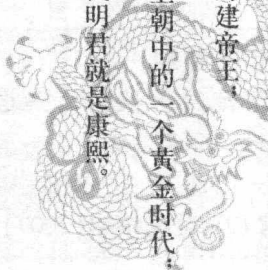 建帝王；
朝中的一个黄金时代；
明君就是康熙。